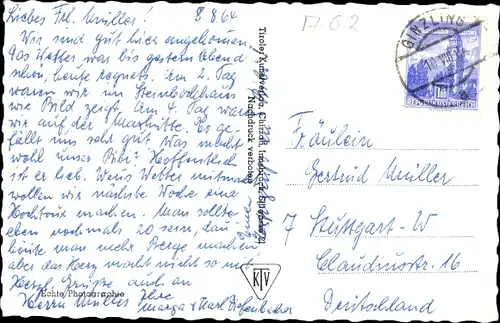 8 8 64
Liebes Frl. Müller!
Wir sind gut hier angekommen.
Das Wetter war bis gestern abend
schön, heute regnets. Am 2. Tag
waren wir im Steinbockhaus
wie Bild zeigt. Am 4. Tag waren
wir auf der Maxhütte. Es ge-
fällt uns sehr gut. Was macht
wohl unser Bubi? Hoffentlich
ist er lieb. Wenns Wetter mitmacht
wollen wir nächste Woche eine
Hochtour machen. Man sollte
eben nochmals 20 sein, dann
könnte man mehr Berge machen
aber das Herz macht nicht so mit
Herzl. Grüße auch an
Herrn Müller Ihre
Marga + Karl
Echte Photographie
Tiroler Kunstverlag Chizzali, Innsbruck
Nachdruck verboten
KTV
A 62
GINZLING
REPUBLIK ÖSTERREICH
Fräulein
Gertrud Müller
7 Stuttgart-W
Claudiusstr. 16
Deutschland